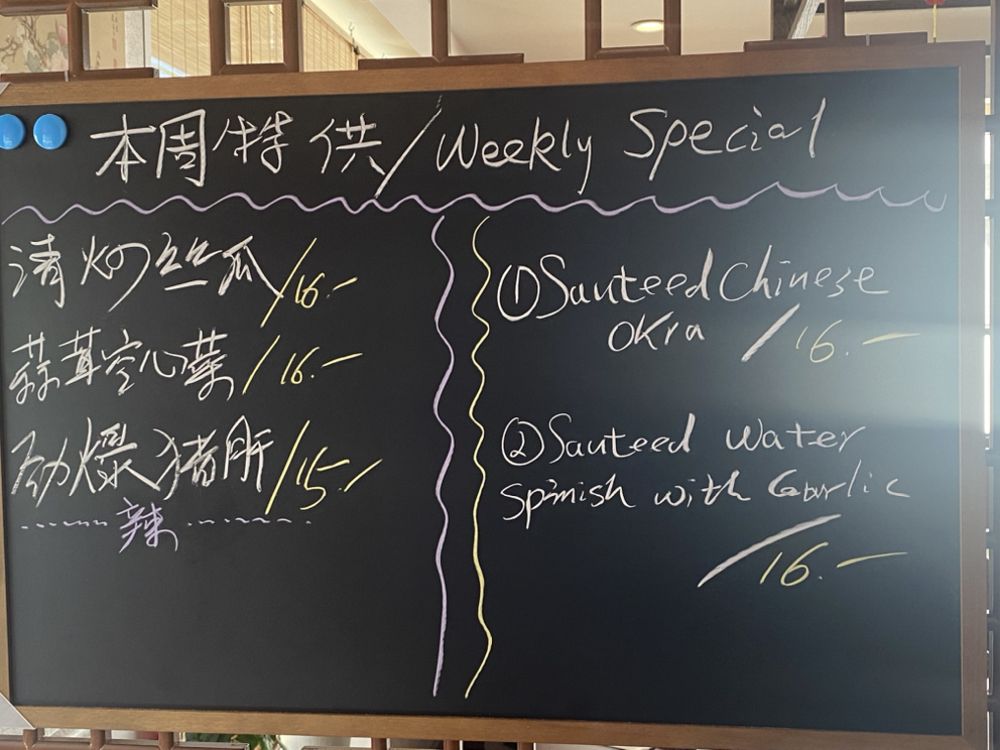 本周特供/Weekly Special
清炒丝瓜/16.-
蒜茸空心菜/16.-
劲爆猪肝/15.-
辣
①Sauteed Chinese
OKra /16.-
②Sauteed Water
Spinish with Garlic
/16.-